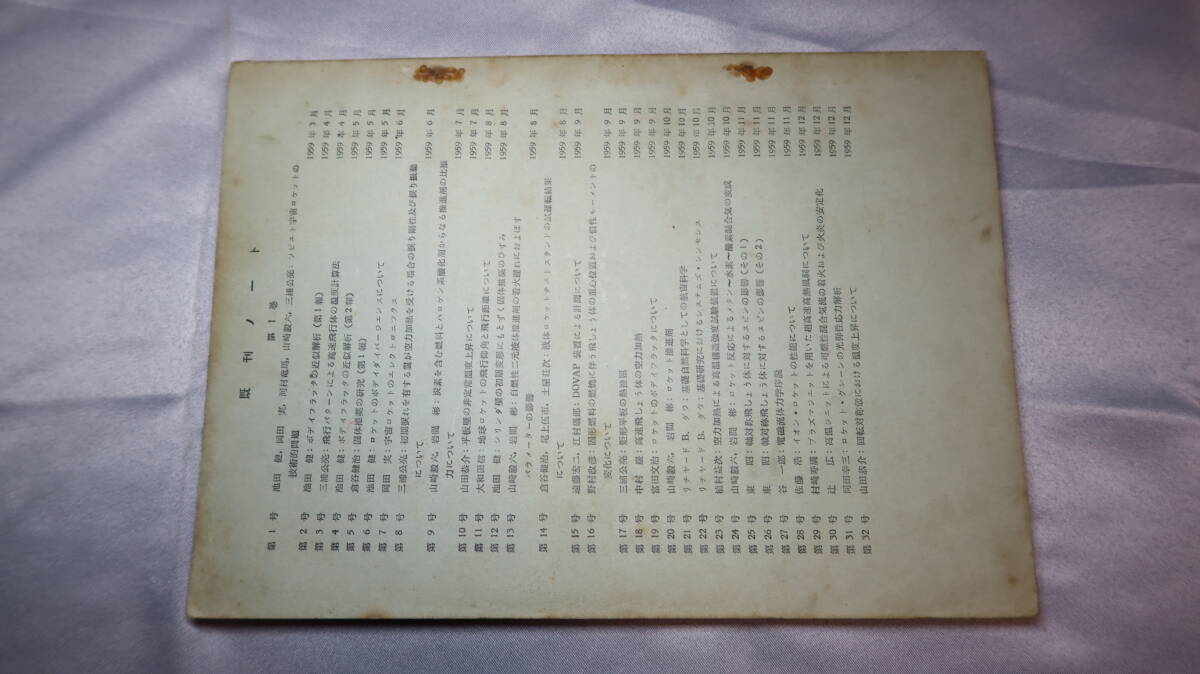 既刊ノート
第1巻
第1号 池田 健,岡田 実,河村竜馬,山崎毅六,三浦公亮:ソビエト宇宙ロケットの
技術的問題 1959年3月
第2号 池田 健:ボディフラッタの近似解析(第1報) 1959年4月
第3号 三浦公亮:飛行パターンによる高速飛行体の温度計算法 1959年4月
第4号 池田 健:ボディフラッタの近似解析(第2報) 1959年5月
第5号 倉谷健治:固体推薬の研究(第1報) 1959年5月
第6号 池田 健:ロケットのボディダイバージェンスについて 1959年5月
第7号 岡田 実:宇宙ロケットのエレクトロニックス 1959年5月
第8号 三浦公亮:初期捩れを有する翼が空力加熱を受ける場合の捩り剛性及び捩り振動
について 1959年6月
第9号 山崎毅六,岩間 彬:炭素を含む燃料とハロゲン系酸化剤からなる推進剤の比推
力について 1959年6月
第10号 山田恭介:平板壁の非定常温度上昇について 1959年7月
第11号 大和田信:地球ロケットの飛行仰角と飛行距離について 1959年7月
第12号 池田 健:シリンダ殻の初期変形にもとずく固体推薬のひずみ 1959年8月
第13号 山崎毅六,岩間 彬:自燃性二元液体推進剤の着火遅れにおよぼす
パラメーターの影響 1959年8月
第14号 倉谷健治,尾上伍市,土屋荘次:液体ロケットテストスタンドの試運転結果
について 1959年8月
第15号 遠藤宏二,江村儀郎:DOVAP装置による計測について 1959年8月
第16号 野村政彦:固形燃料の燃焼に伴う飛しょう体の重心位置および慣性モーメントの
変化について 1959年9月
第17号 三浦公亮:矩形平板の熱挫屈 1959年9月
第18号 中村 巌:高速飛しょう体の空力加熱 1959年9月
第19号 富田文治:ロケットのボディフラッタについて 1959年9月
第20号 山崎毅六,岩間 彬:ロケット推進剤 1959年10月
第21号 リチャード B. ダウ:基礎自然科学としての航宙科学 1959年10月
第22号 リチャード B. ダウ:基礎研究におけるシステムズ・シンセシス 1959年10月
第23号 植村益次:空力加熱による高温構造強度試験装置について 1959年10月
第24号 山崎毅六,岩間 彬:ロケット反応によるメタン〜水素〜酸素混合気の変成 1959年10月
第25号 東 昭:軸対称飛しょう体に対するスピンの影響(その1) 1959年11月
第26号 東 昭:軸対称飛しょう体に対するスピンの影響(その2) 1959年11月
第27号 谷 一郎:電磁流体力学序説 1959年11月
第28号 佐藤 浩:イオン・ロケットの性能について 1959年11月
第29号 村崎寿満:プラズマジェットを用いた超高速高熱風洞について 1959年12月
第30号 辻 広:高温ジェットによる可燃性混合気流の着火および火炎の安定化 1959年12月
第31号 岡田幸三:ロケット・グレーンの光弾性応力解析 1959年12月
第32号 山田恭介:回転対称殻における温度上昇について 1959年12月